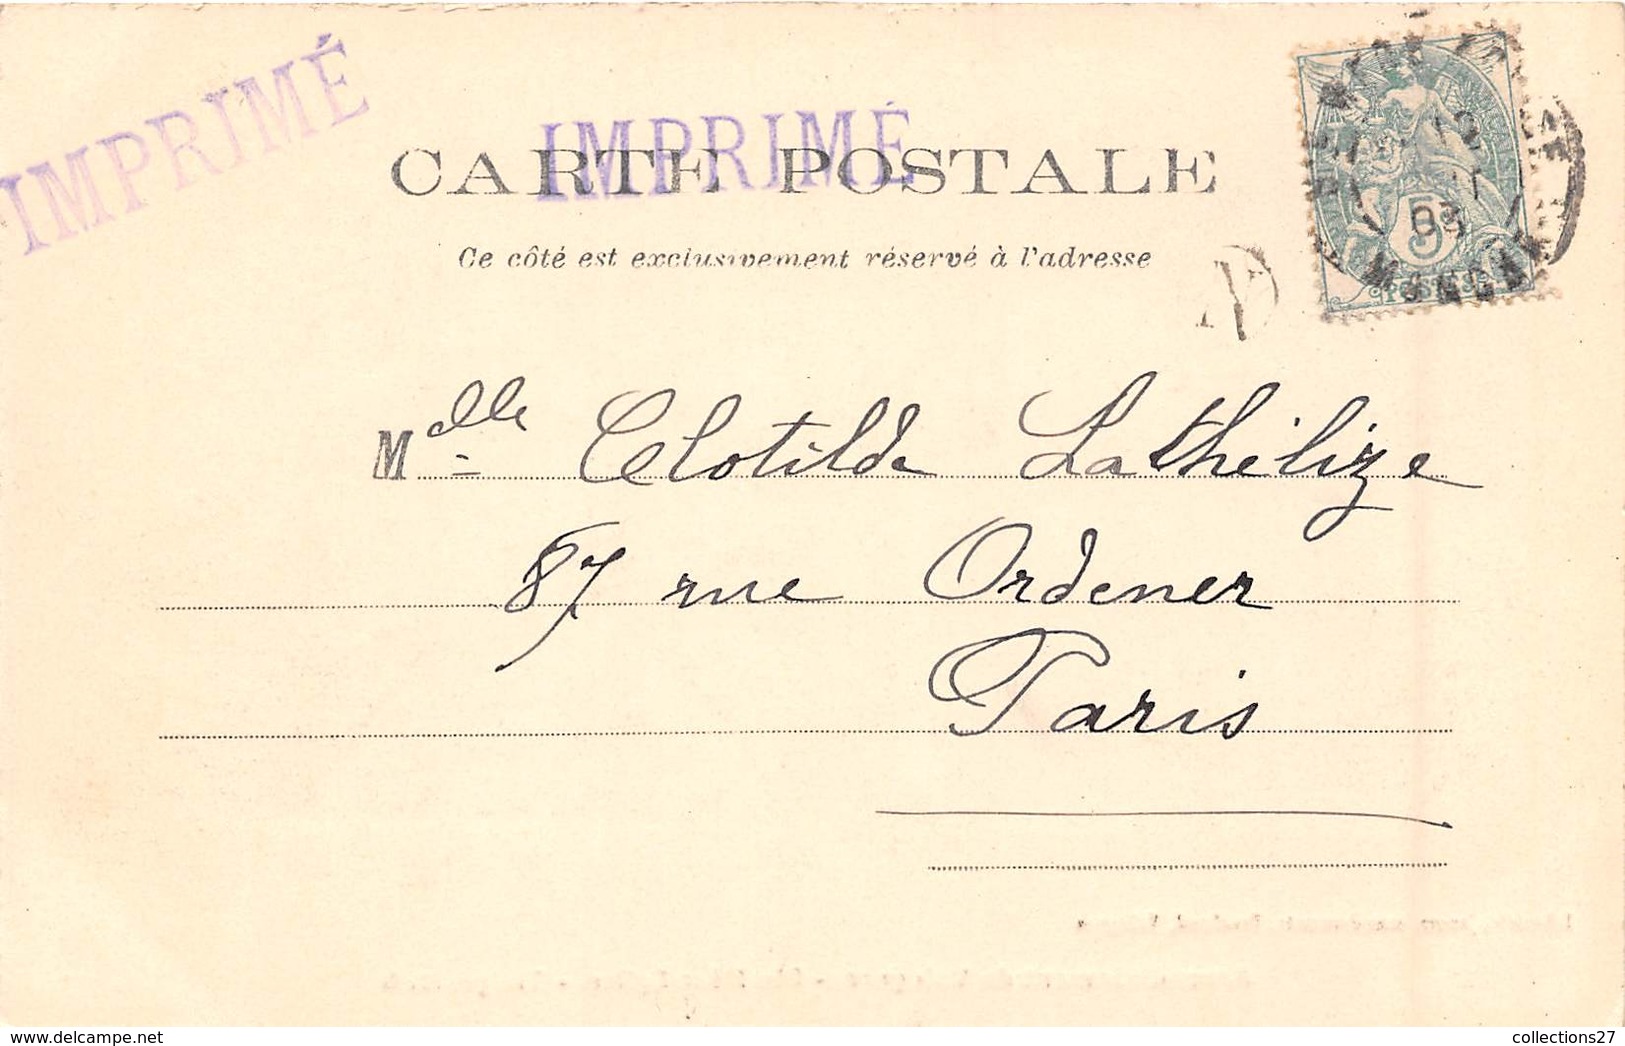 IMPRIMÉ
IMPRIMÉ
CARTE POSTALE
Ce côté est exclusivement réservé à l'adresse
03
5
POSTES
Mdlle Clotilde Lathélize
87 rue Ordener
Paris
collections27